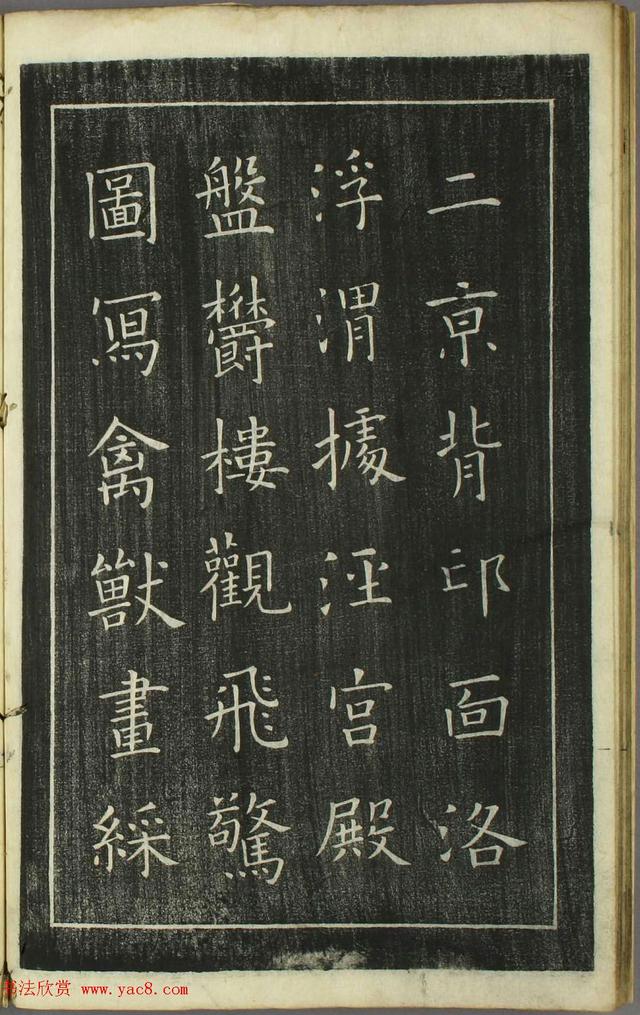 二京背邙面洛
浮渭據涇宮殿
盤欝樓觀飛驚
圖寫禽獸畫綵
书法欣赏 www.yac8.com